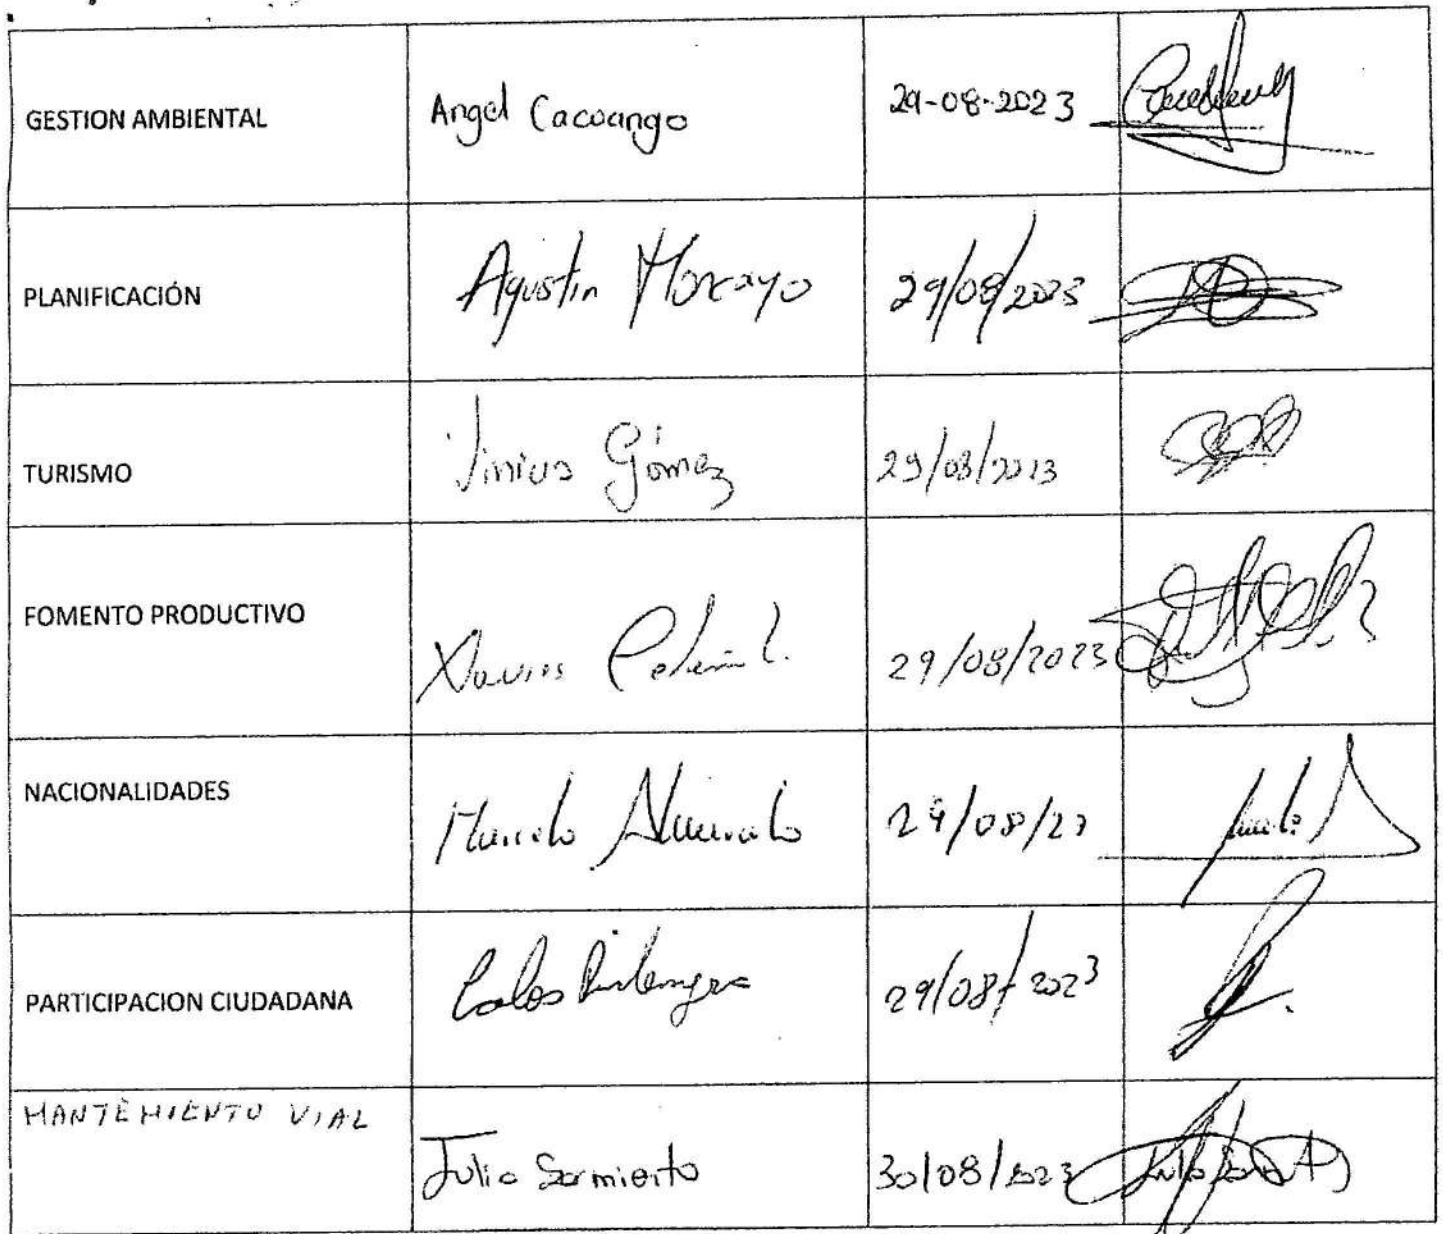 GESTION AMBIENTAL Angel Cacuango 29-08-2023
PLANIFICACIÓN Agustin Moncayo 29/08/2023
TURISMO Vinicio Gómez 29/08/2023
FOMENTO PRODUCTIVO 29/08/2023
NACIONALIDADES Marcelo 29/08/23
PARTICIPACION CIUDADANA Carlos 29/08/2023
MANTEMIENTO VIAL Julio Sarmiento 30/08/2023